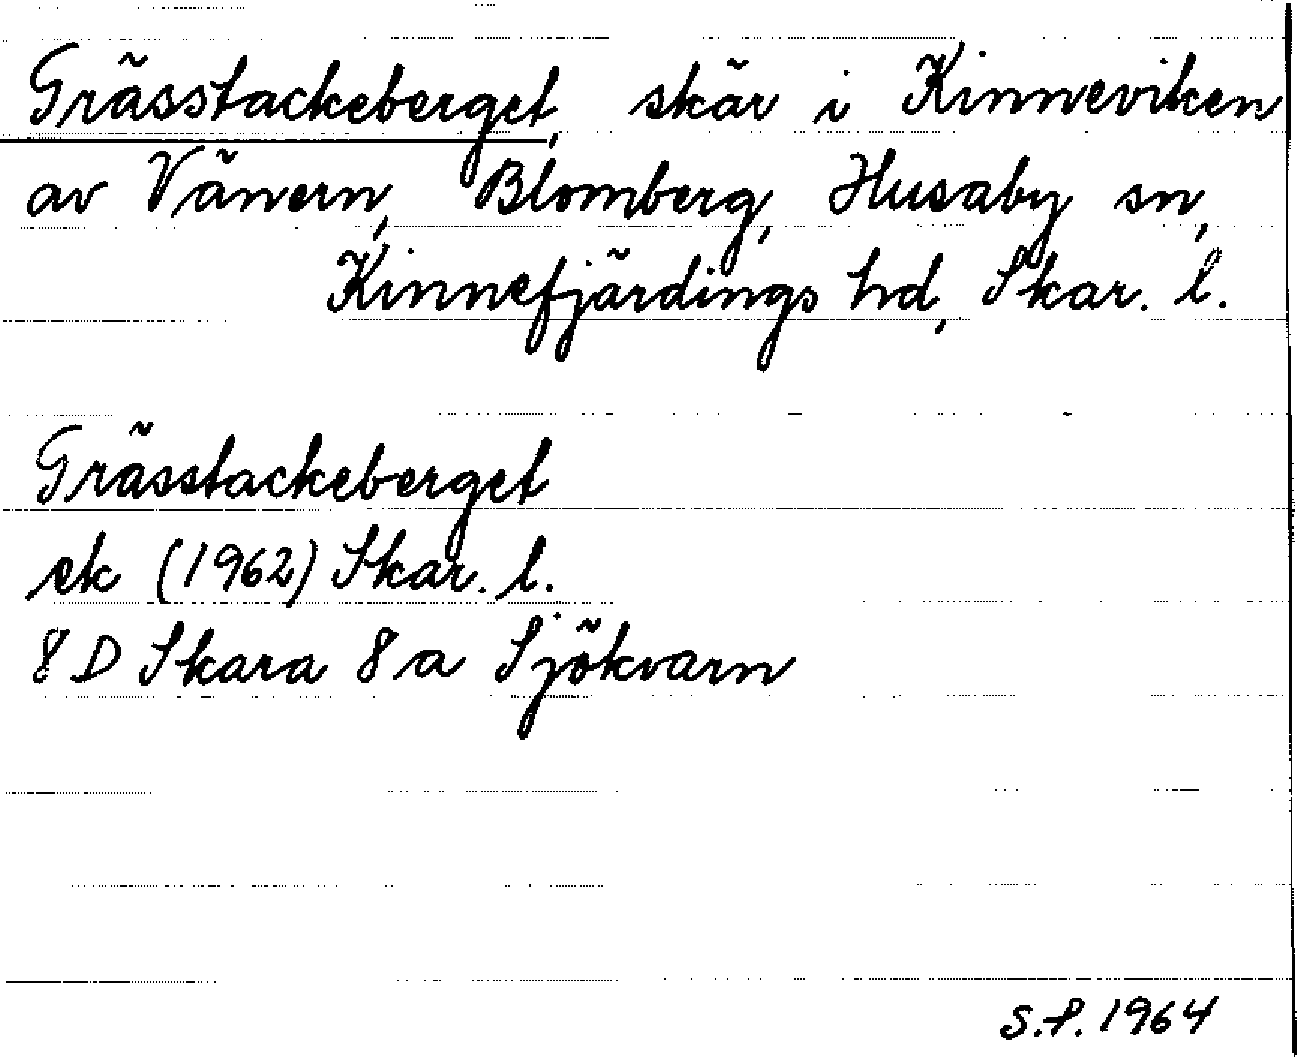 Grässtackeberget, skär i Kinneviken
av Vänern, Blomberg, Husaby sn,
Kinnefjärdings hd, Skar. l.
Grässtackeberget
ek (1962) Skar. l.
8 D Skara 8 a Sjökvarn
S.P. 1964